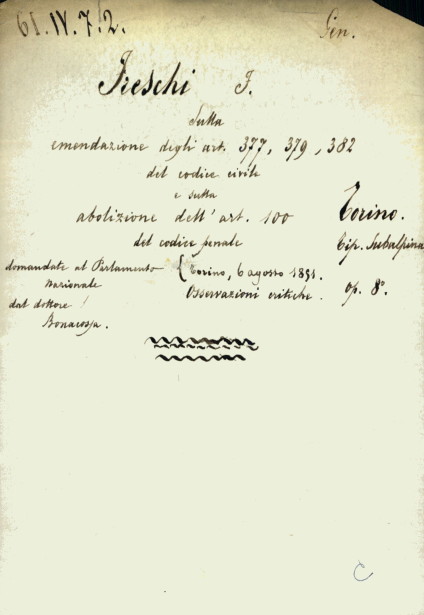 61.IV.7.2.
Gen.
Freschi F.
Sulla
emendazione degli art. 377, 379, 382
del codice civile
e sulla
abolizione dell' art. 100
del codice penale
domandate al Parlamento
Nazionale
dal dottore
Bonacossa.
(Torino, 6 agosto 1851.
Osservazioni critiche.
Torino.
Tip. Subalpina
op. 8°.
C